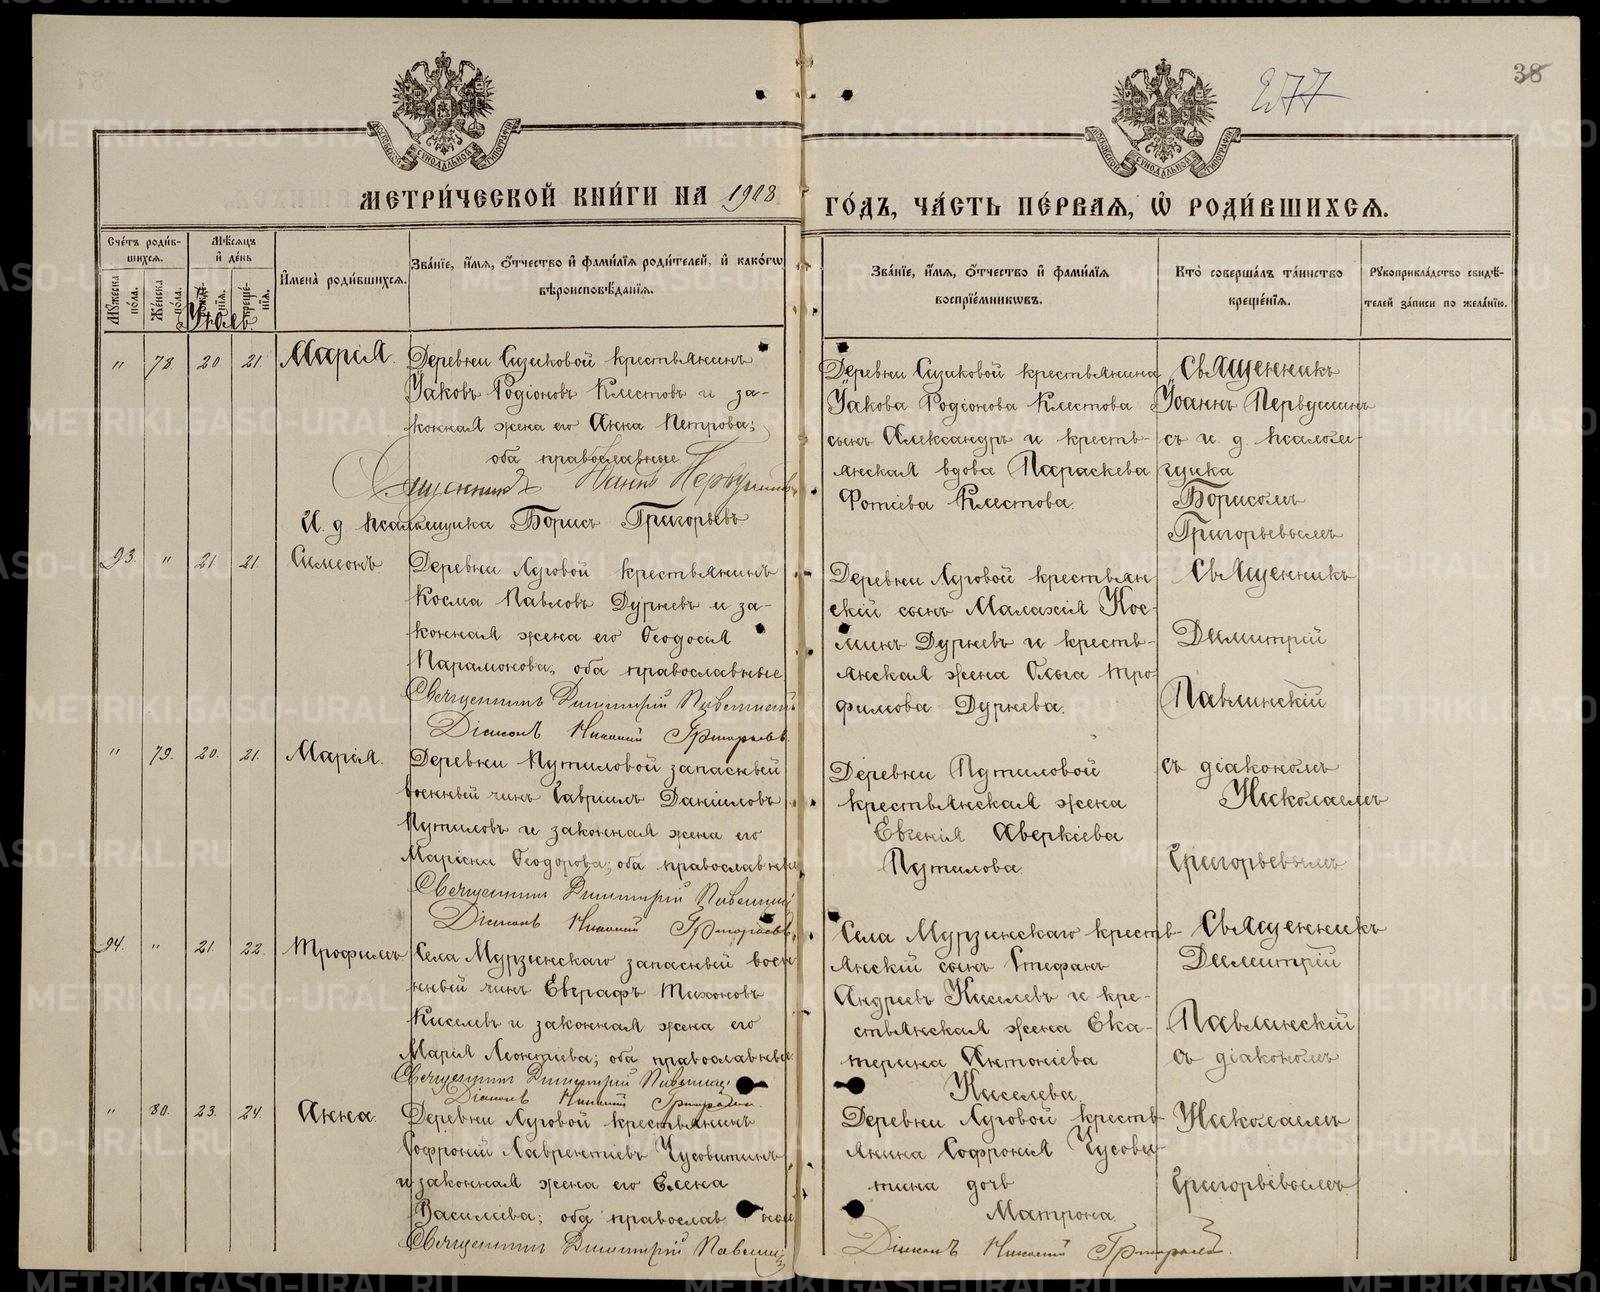 38
277
МОСКОВСКОЙ СѴНОДАЛЬНОЙ ТИПОГРАФІИ
МОСКОВСКОЙ СѴНОДАЛЬНОЙ ТИПОГРАФІИ
МЕТРИ́ЧЕСКОЙ КНИ́ГИ НА 1908
ГО́ДЪ, ЧА́СТЬ ПЕ́РВАЯ, Ѽ РОДИ́ВШИХСЯ.
Сче́тъ роди́в-
шихся.
Мѣ́сяцъ
и҆ де́нь
И҆мена̀ роди́вшихся.
Зва́нїе, и҆́мя, ѻ҆́тчество и҆ фами́лїя роди́телей, и҆ како́гѡ
вѣроисповѣ́данїя.
Зва́нїе, и҆́мя, ѻ҆́тчество и҆ фами́лїя
воспрїе́мникѡвъ.
Кто̀ соверша́лъ та́инство
креще́нїя.
Рꙋкоприкла́дство свидѣ́-
телей за́писи по жела́нїю.
Мꙋ́жеска по́ла.
Же́нска по́ла.
рожде́-нїя.
креще́-нїя.
Іюль
" 78. 20. 21. Марія.
Деревни Сизиковой крестьянинъ
Іаковъ Родіоновъ Клестовъ и за-
конная жена его Анна Петрова;
оба православные.
Священникъ Іоаннъ Первушинъ
И. д. псаломщика Борисъ Григорьевъ
Деревни Сизиковой крестьянина
Іакова Родіонова Клестова
сынъ Александръ и кресть-
янская вдова Параскева
Фотіева Клестова.
Священникъ
Іоаннъ Первушинъ
съ и. д. псалом-
щика
Борисомъ
Григорьевымъ
93. " 21 21 Симеонъ
Деревни Луговой крестьянинъ
Косма Павловъ Дурневъ и за-
конная жена его Ѳеодосія
Парамонова; оба православные
Священникъ Димитрій Павлинскій
Діаконъ Николай Григорьевъ.
Деревни Луговой крестьян-
скій сынъ Малахія Кос-
минъ Дурневъ и кресть-
янская жена Ольга Тро-
фимова Дурнева.
Священникъ
Димитрій
Павлинскій
" 79. 20. 21. Марія.
Деревни Путиловой запасный
военный чинъ Гавріилъ Даніиловъ
Путиловъ и законная жена его
Маріона Ѳеодорова; оба православные
Священникъ Димитрій Павлинскій
Діаконъ Николай Григорьевъ.
Деревни Путиловой
крестьянская жена
Евгенія Аверкіева
Путилова.
съ діакономъ
Николаемъ
Григорьевымъ.
94. " 21. 22. Трофимъ
Села Мурзинскаго запасный воен-
ный чинъ Евграфъ Тихоновъ
Киселевъ и законная жена его
Марія Леонтіева; оба православные
Священникъ Димитрій Павлинскій
Діаконъ Николай Григорьевъ.
Села Мурзинскаго кресть-
янскій сынъ Стефанъ
Андреевъ Киселевъ и кре-
стьянская жена Ека-
терина Антоніева
Киселева.
Священникъ
Димитрій
Павлинскій
съ діакономъ
" 80. 23. 24. Анна.
Деревни Луговой крестьянинъ
Софроній Лаврентіевъ Чусовитинъ
и законная жена его Елена
Василіева; оба православные
Священникъ Димитрій Павлинскій
Деревни Луговой кресть-
янина Софронія Чусови-
тина дочь
Матрона.
Діаконъ Николай Григорьевъ.
Николаемъ
Григорьевымъ